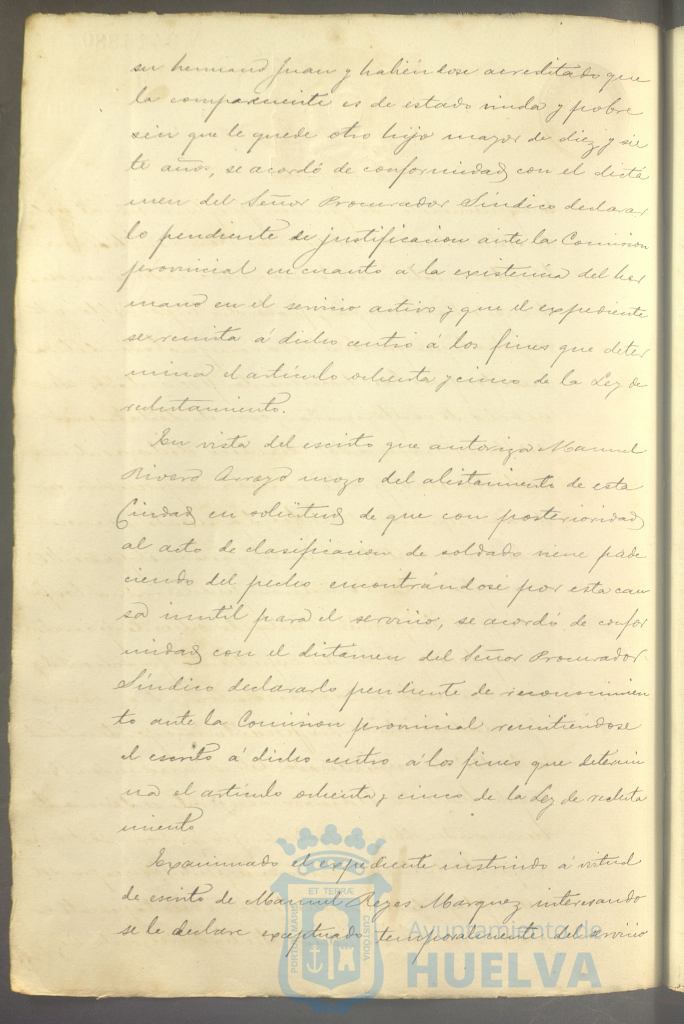 su hermano Juan y habiéndose acreditado que
la compareciente es de estado viuda y pobre
sin que le quede otro hijo mayor de diez y sie
te años, se acordó de conformidad con el dictá
men del Señor Procurador Síndico declarar
lo pendiente de justificacion ante la Comision
provincial en cuanto á la existencia del her
mano en el servicio activo y que el expediente
se remita á dicho centro á los fines que deter
mina el artículo ochenta y cinco de la Ley de
reclutamiento.
En vista del escrito que autoriza Manuel
Rivero Arroyo mozo del alistamiento de esta
Ciudad en solicitud de que con posterioridad
al acto de clasificacion de soldado viene pade
ciendo del pecho encontrándose por esta cau
sa inutil para el servicio, se acordó de confor
midad con el dictámen del Señor Procurador
Síndico declararlo pendiente de reconocimien
to ante la Comision provincial remitiendose
el escrito á dicho centro á los fines que determi
na el artículo ochenta y cinco de la Ley de recluta
miento
Examinado el expediente instruido á virtud
de escrito de Manuel Reyes Marquez interesando
se le declare exceptuado temporalmente del servicio
ET TERRÆ
PORTUS MARIS
CUSTODIA
Ayuntamiento de
HUELVA